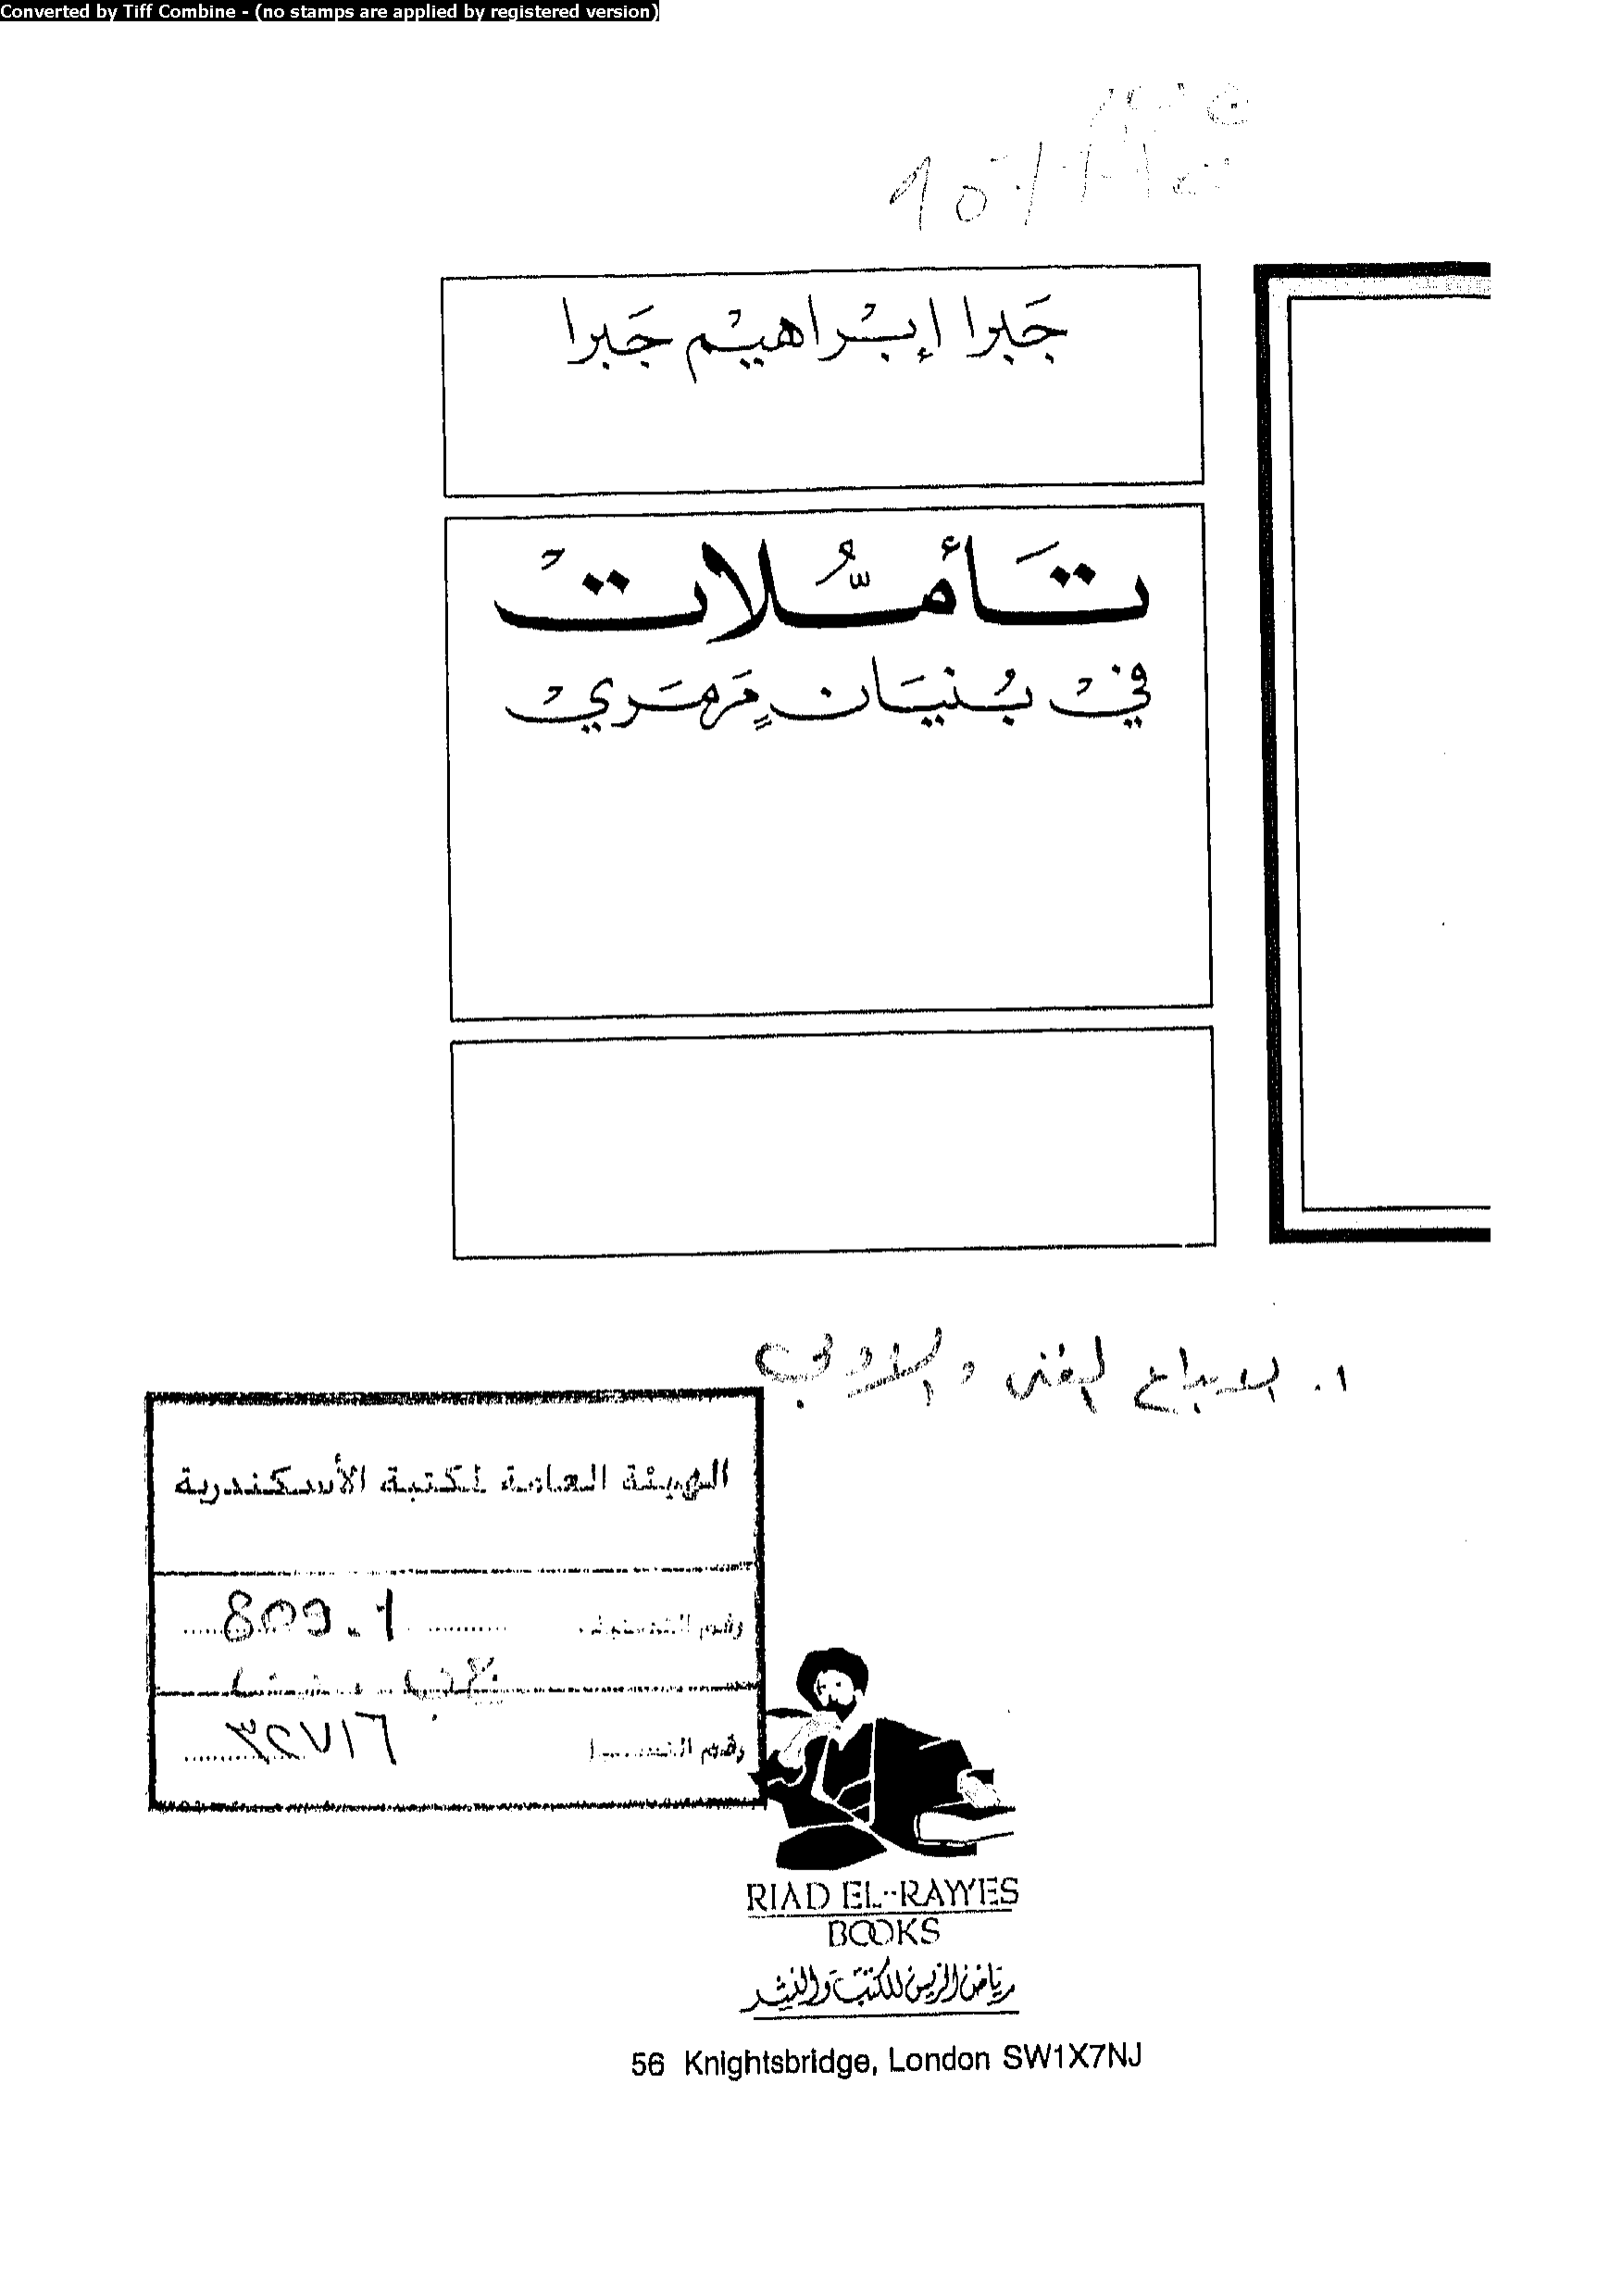 Converted by Tiff Combine - (no stamps are applied by registered version)
جَبرا إبْراهيْم جَبرا
تَأمُّلاتْ
فيْ بُنيَان مَرمَريْ
١. الابداع الفنى والادبى
الهيئة العامة لمكتبة الأسكندرية
رقم التصنيف 809.1
رقم التسجيل ٣٢٧١٦
RIAD EL-RAYYES
BOOKS
رياض الريس للكتب والنشر
56 Knightsbridge, London SW1X7NJ